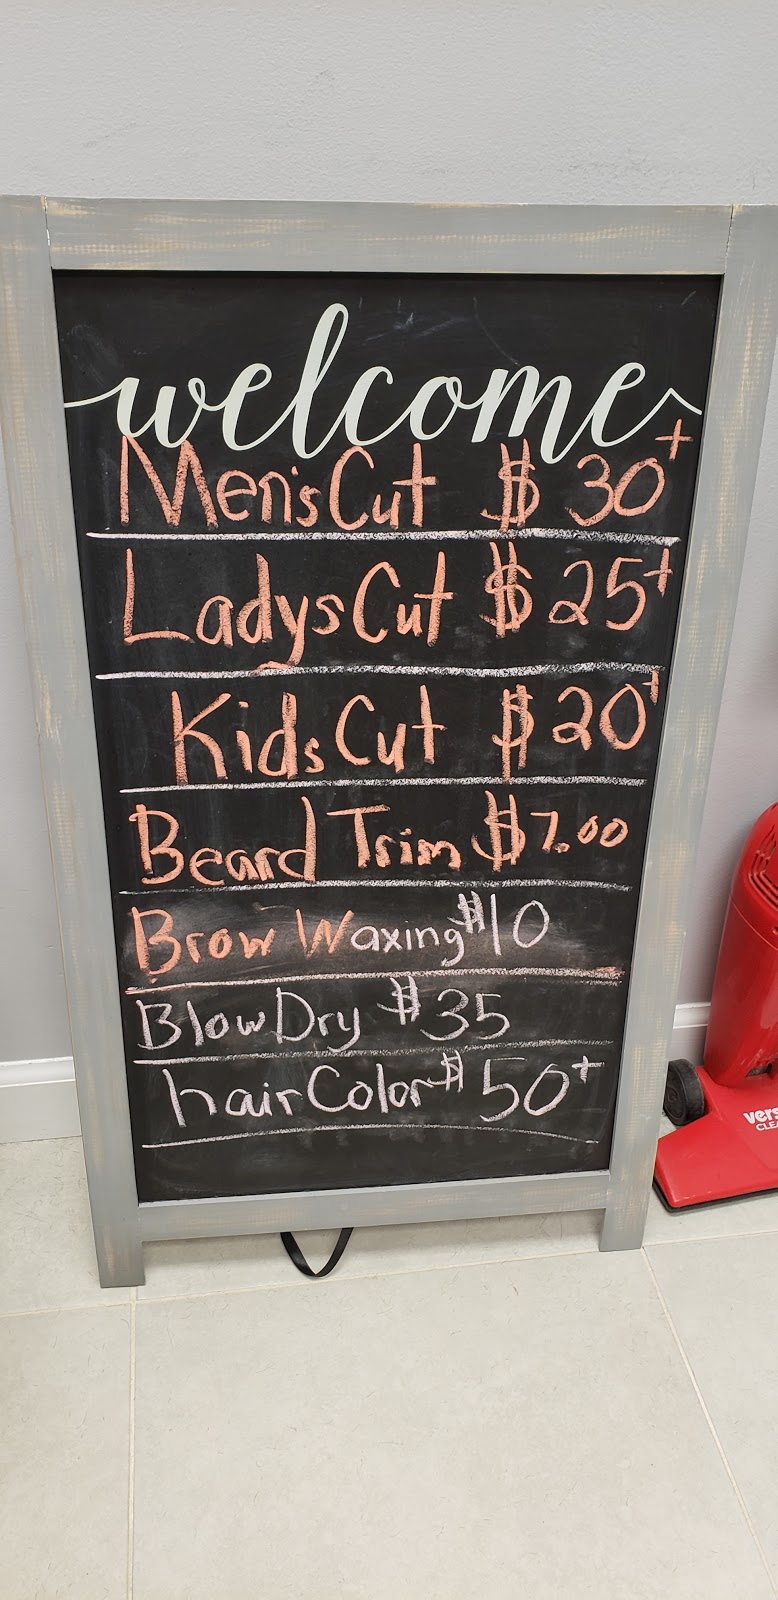 welcome
Men's Cut $30+
Ladys Cut $25+
Kids Cut $20+
Beard Trim $7.00
Brow Waxing $10
Blow Dry $35
hair Color $50+